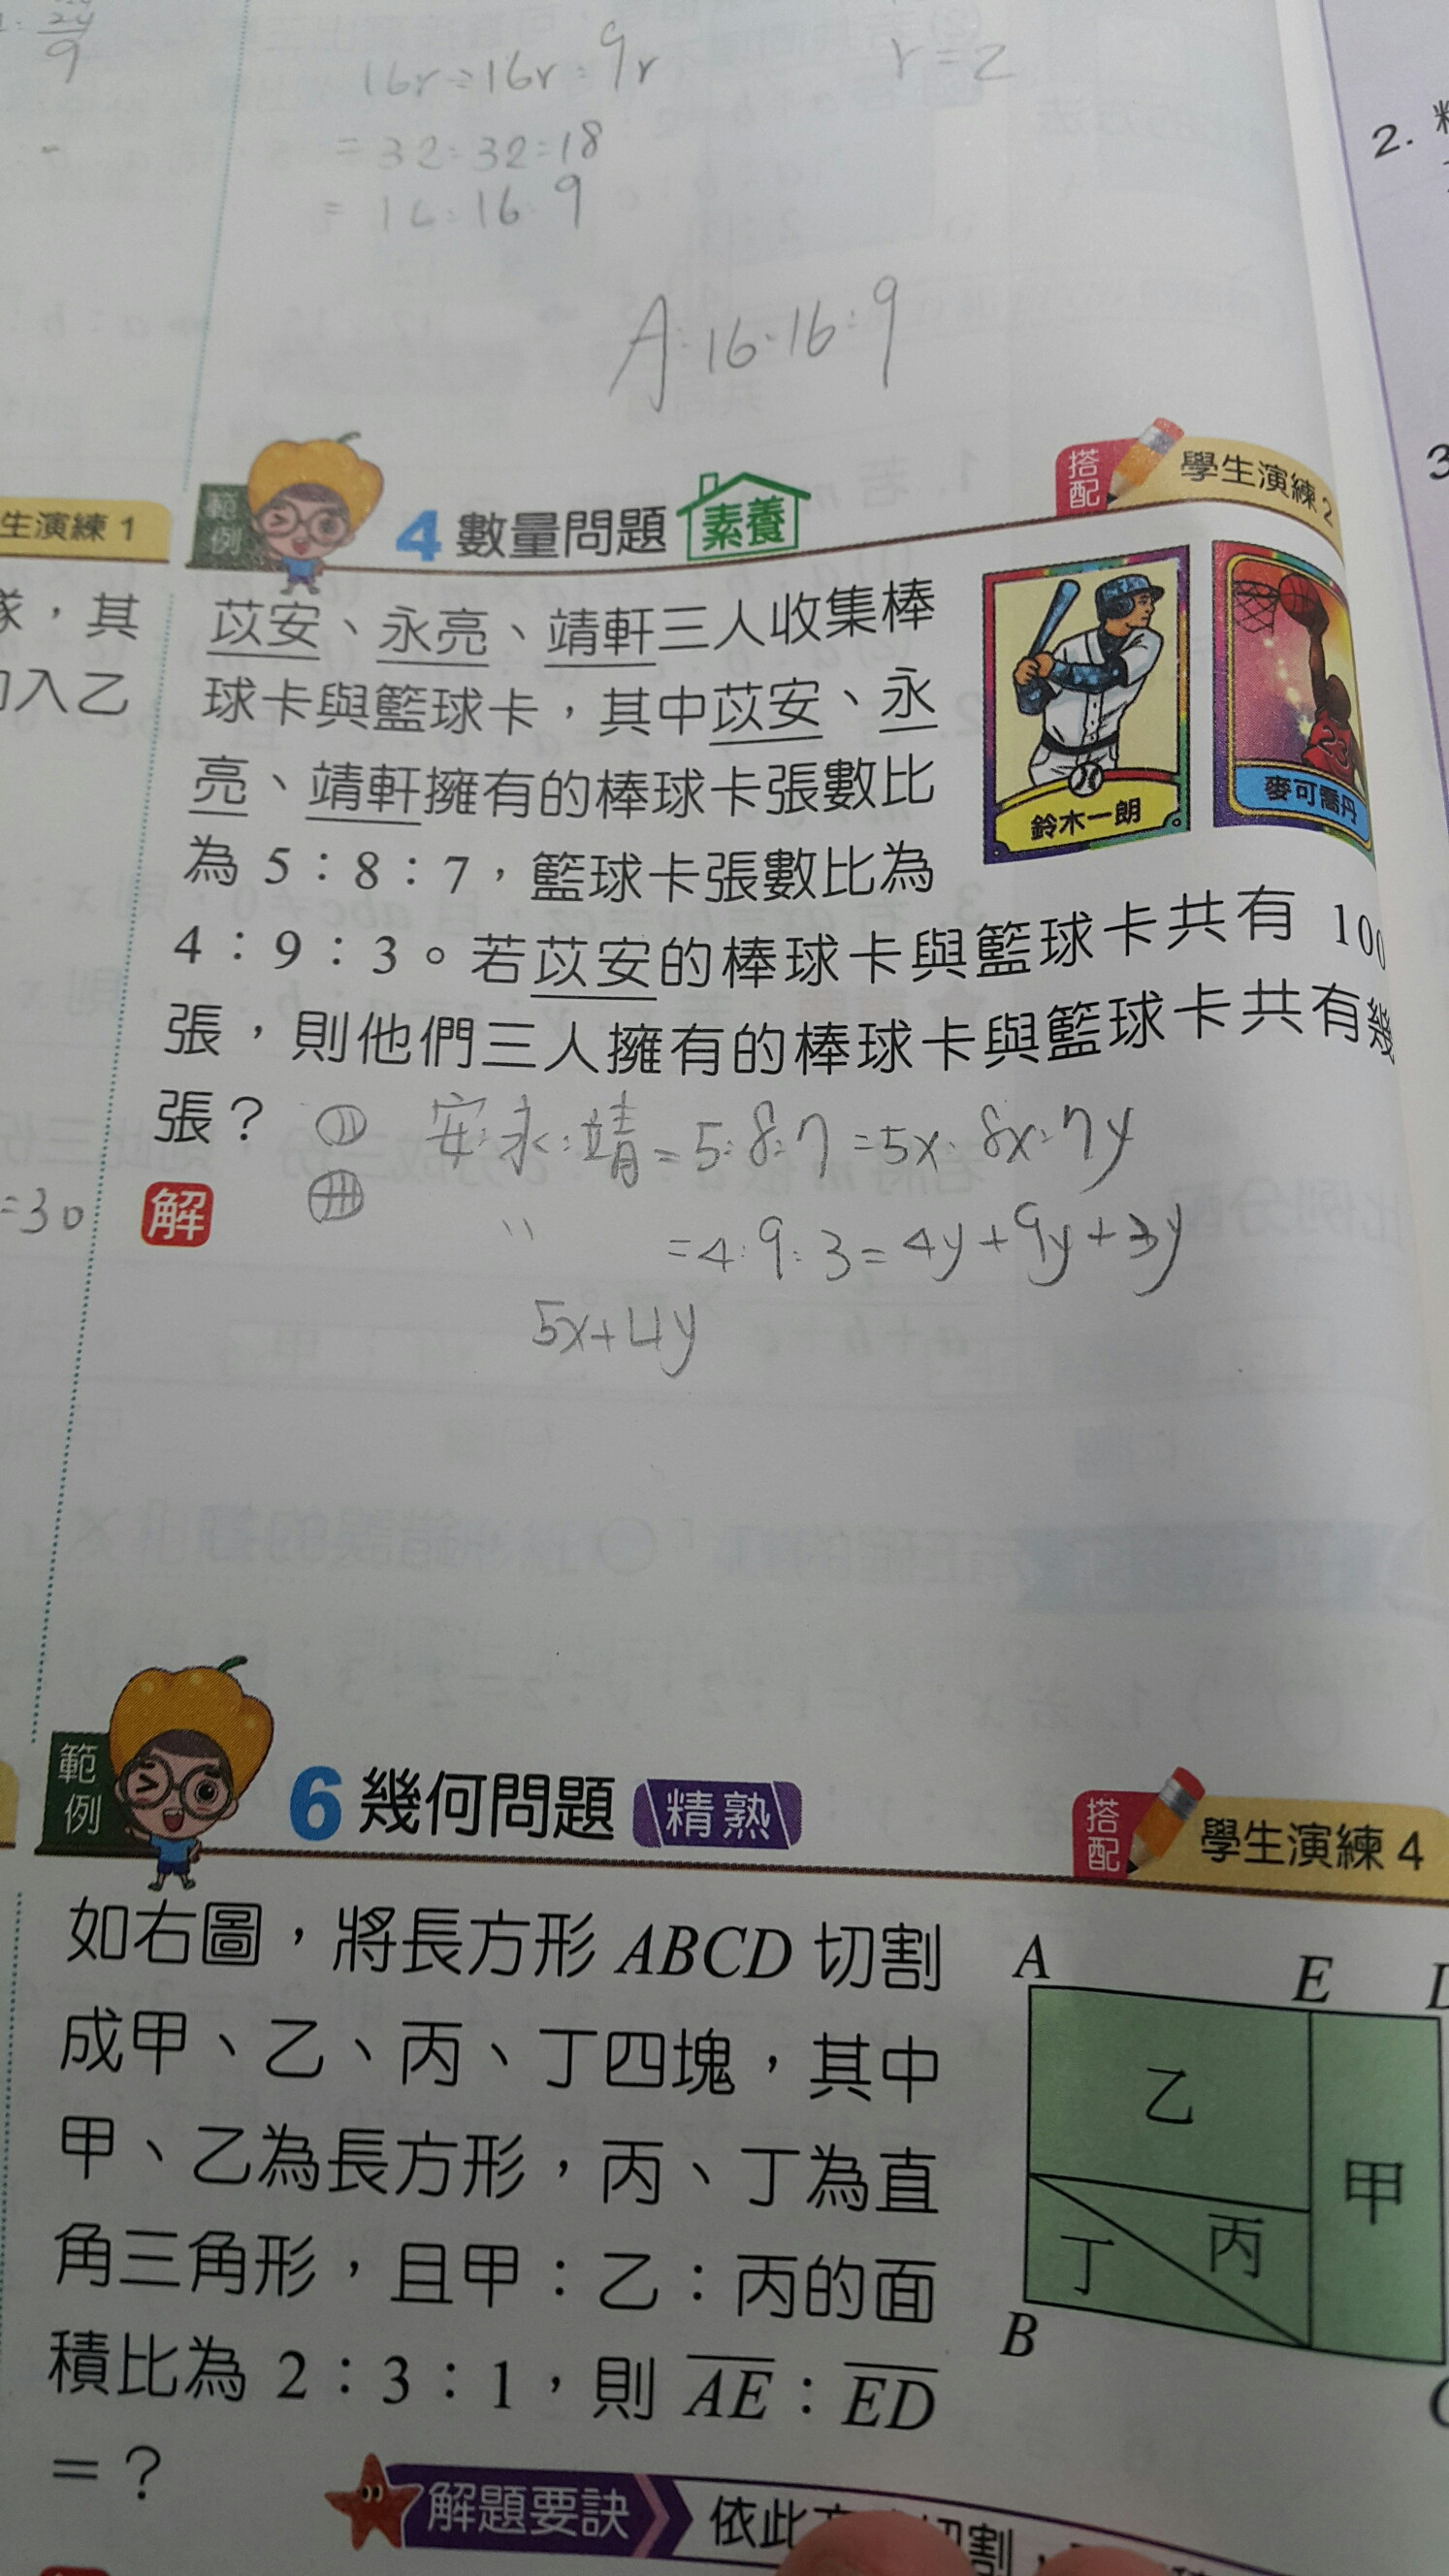 24
9
16r:16r:9r
r=2
=32:32:18
=16:16:9
A:16:16:9
2.
3
生演練 1
範例
4 數量問題 素養
搭配
學生演練 2
隊，其
入乙
苡安、永亮、靖軒三人收集棒
球卡與籃球卡，其中苡安、永
亮、靖軒擁有的棒球卡張數比
為 5：8：7，籃球卡張數比為
4：9：3。若苡安的棒球卡與籃球卡共有 100
張，則他們三人擁有的棒球卡與籃球卡共有幾
張？
鈴木一朗
23
麥可喬丹
安:永:靖=5:8:7=5x:8x:7y
=4:9:3=4y+9y+3y
5x+4y
=30
解
範例
6 幾何問題 精熟
搭配
學生演練 4
如右圖，將長方形 ABCD 切割
成甲、乙、丙、丁四塊，其中
甲、乙為長方形，丙、丁為直
角三角形，且甲：乙：丙的面
積比為 2：3：1，則 AE：ED
=？
A
E
乙
甲
丙
丁
B
解題要訣
依此
切割，